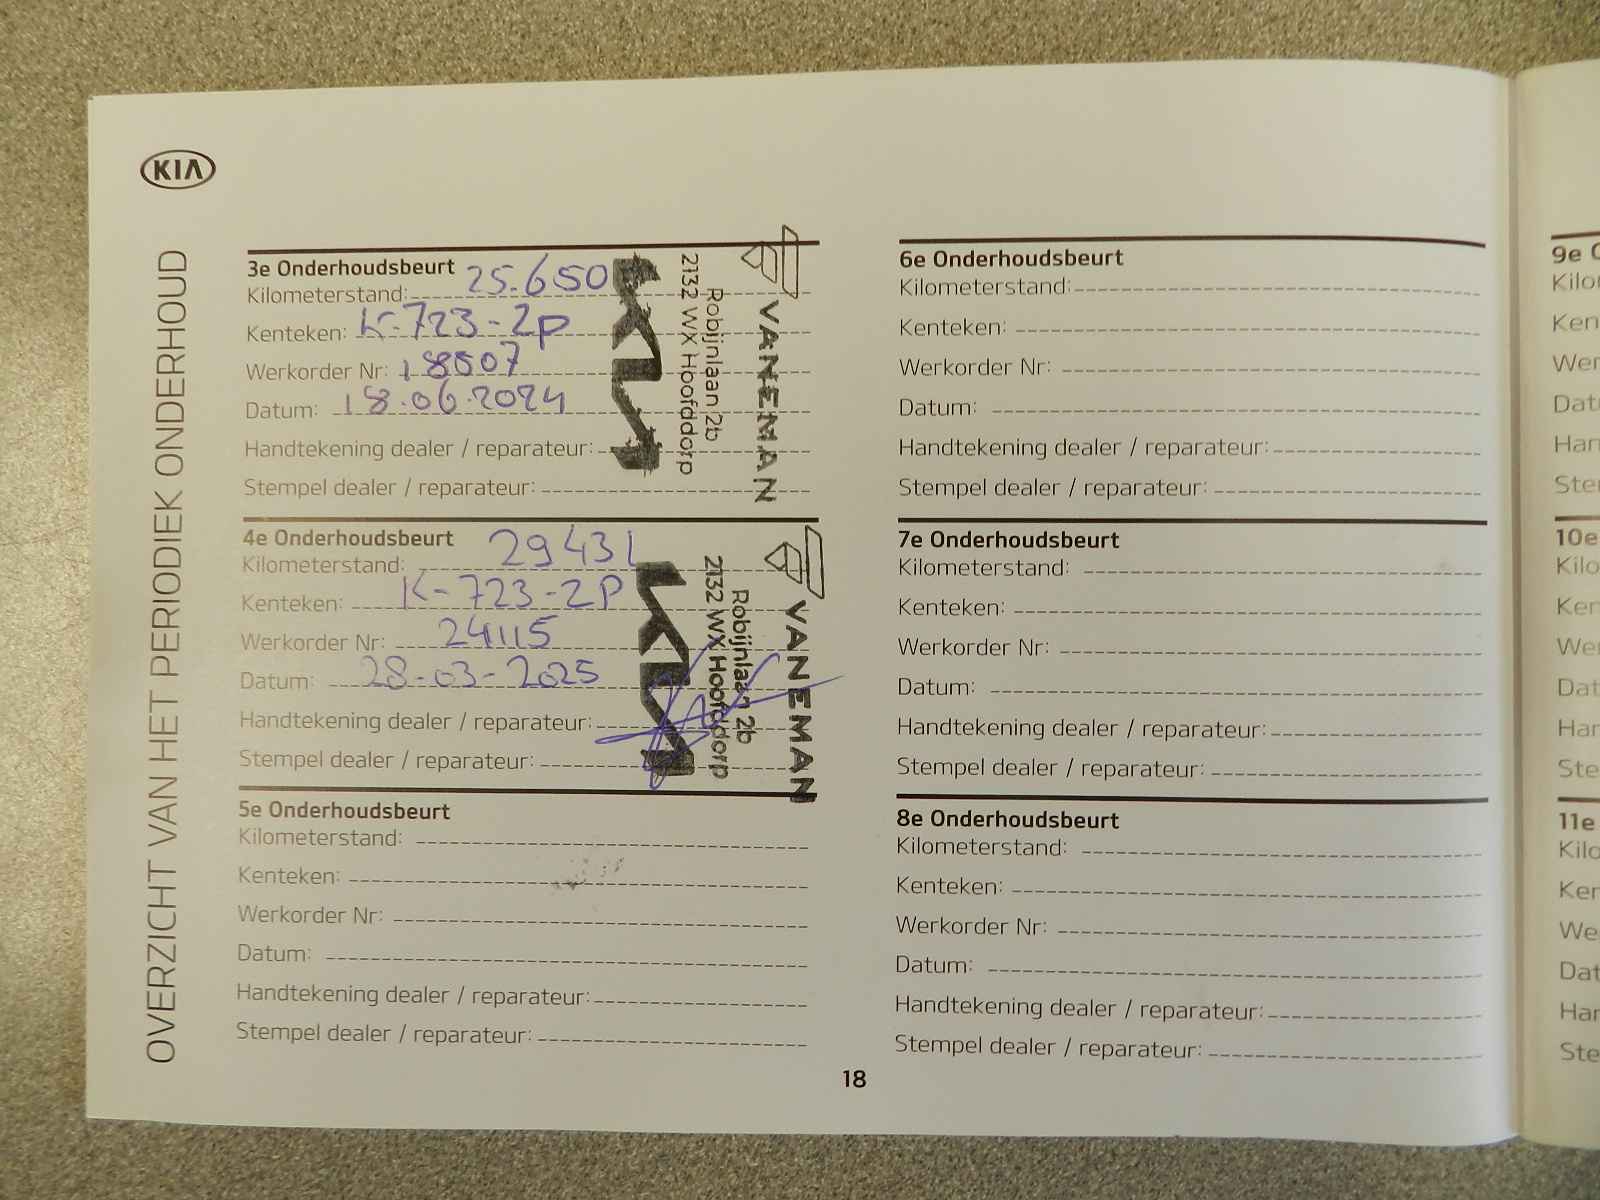 KIA
OVERZICHT VAN HET PERIODIEK ONDERHOUD
3e Onderhoudsbeurt
Kilometerstand: 25.650
Kenteken: K-723-2P
Werkorder Nr: 18507
Datum: 18.06.2024
Handtekening dealer / reparateur:
Stempel dealer / reparateur:
VANEMAN
Robijnlaan 2b
2132 WX Hoofddorp
KIA
4e Onderhoudsbeurt
Kilometerstand: 29431
Kenteken: K-723-2P
Werkorder Nr: 24115
Datum: 28-03-2025
Handtekening dealer / reparateur:
Stempel dealer / reparateur:
VANEMAN
Robijnlaan 2b
2132 WX Hoofddorp
KIA
5e Onderhoudsbeurt
Kilometerstand:
Kenteken:
Werkorder Nr:
Datum:
Handtekening dealer / reparateur:
Stempel dealer / reparateur:
6e Onderhoudsbeurt
Kilometerstand:
Kenteken:
Werkorder Nr:
Datum:
Handtekening dealer / reparateur:
Stempel dealer / reparateur:
7e Onderhoudsbeurt
Kilometerstand:
Kenteken:
Werkorder Nr:
Datum:
Handtekening dealer / reparateur:
Stempel dealer / reparateur:
8e Onderhoudsbeurt
Kilometerstand:
Kenteken:
Werkorder Nr:
Datum:
Handtekening dealer / reparateur:
Stempel dealer / reparateur:
18
9e
10e
11e